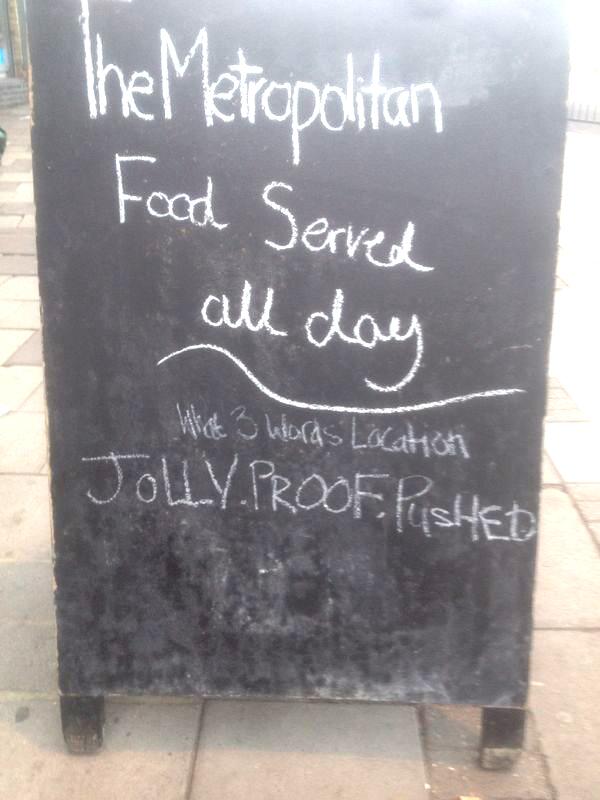 The Metropolitan
Food Served
all day
What 3 Words Location
JOLLY.PROOF.PusHED